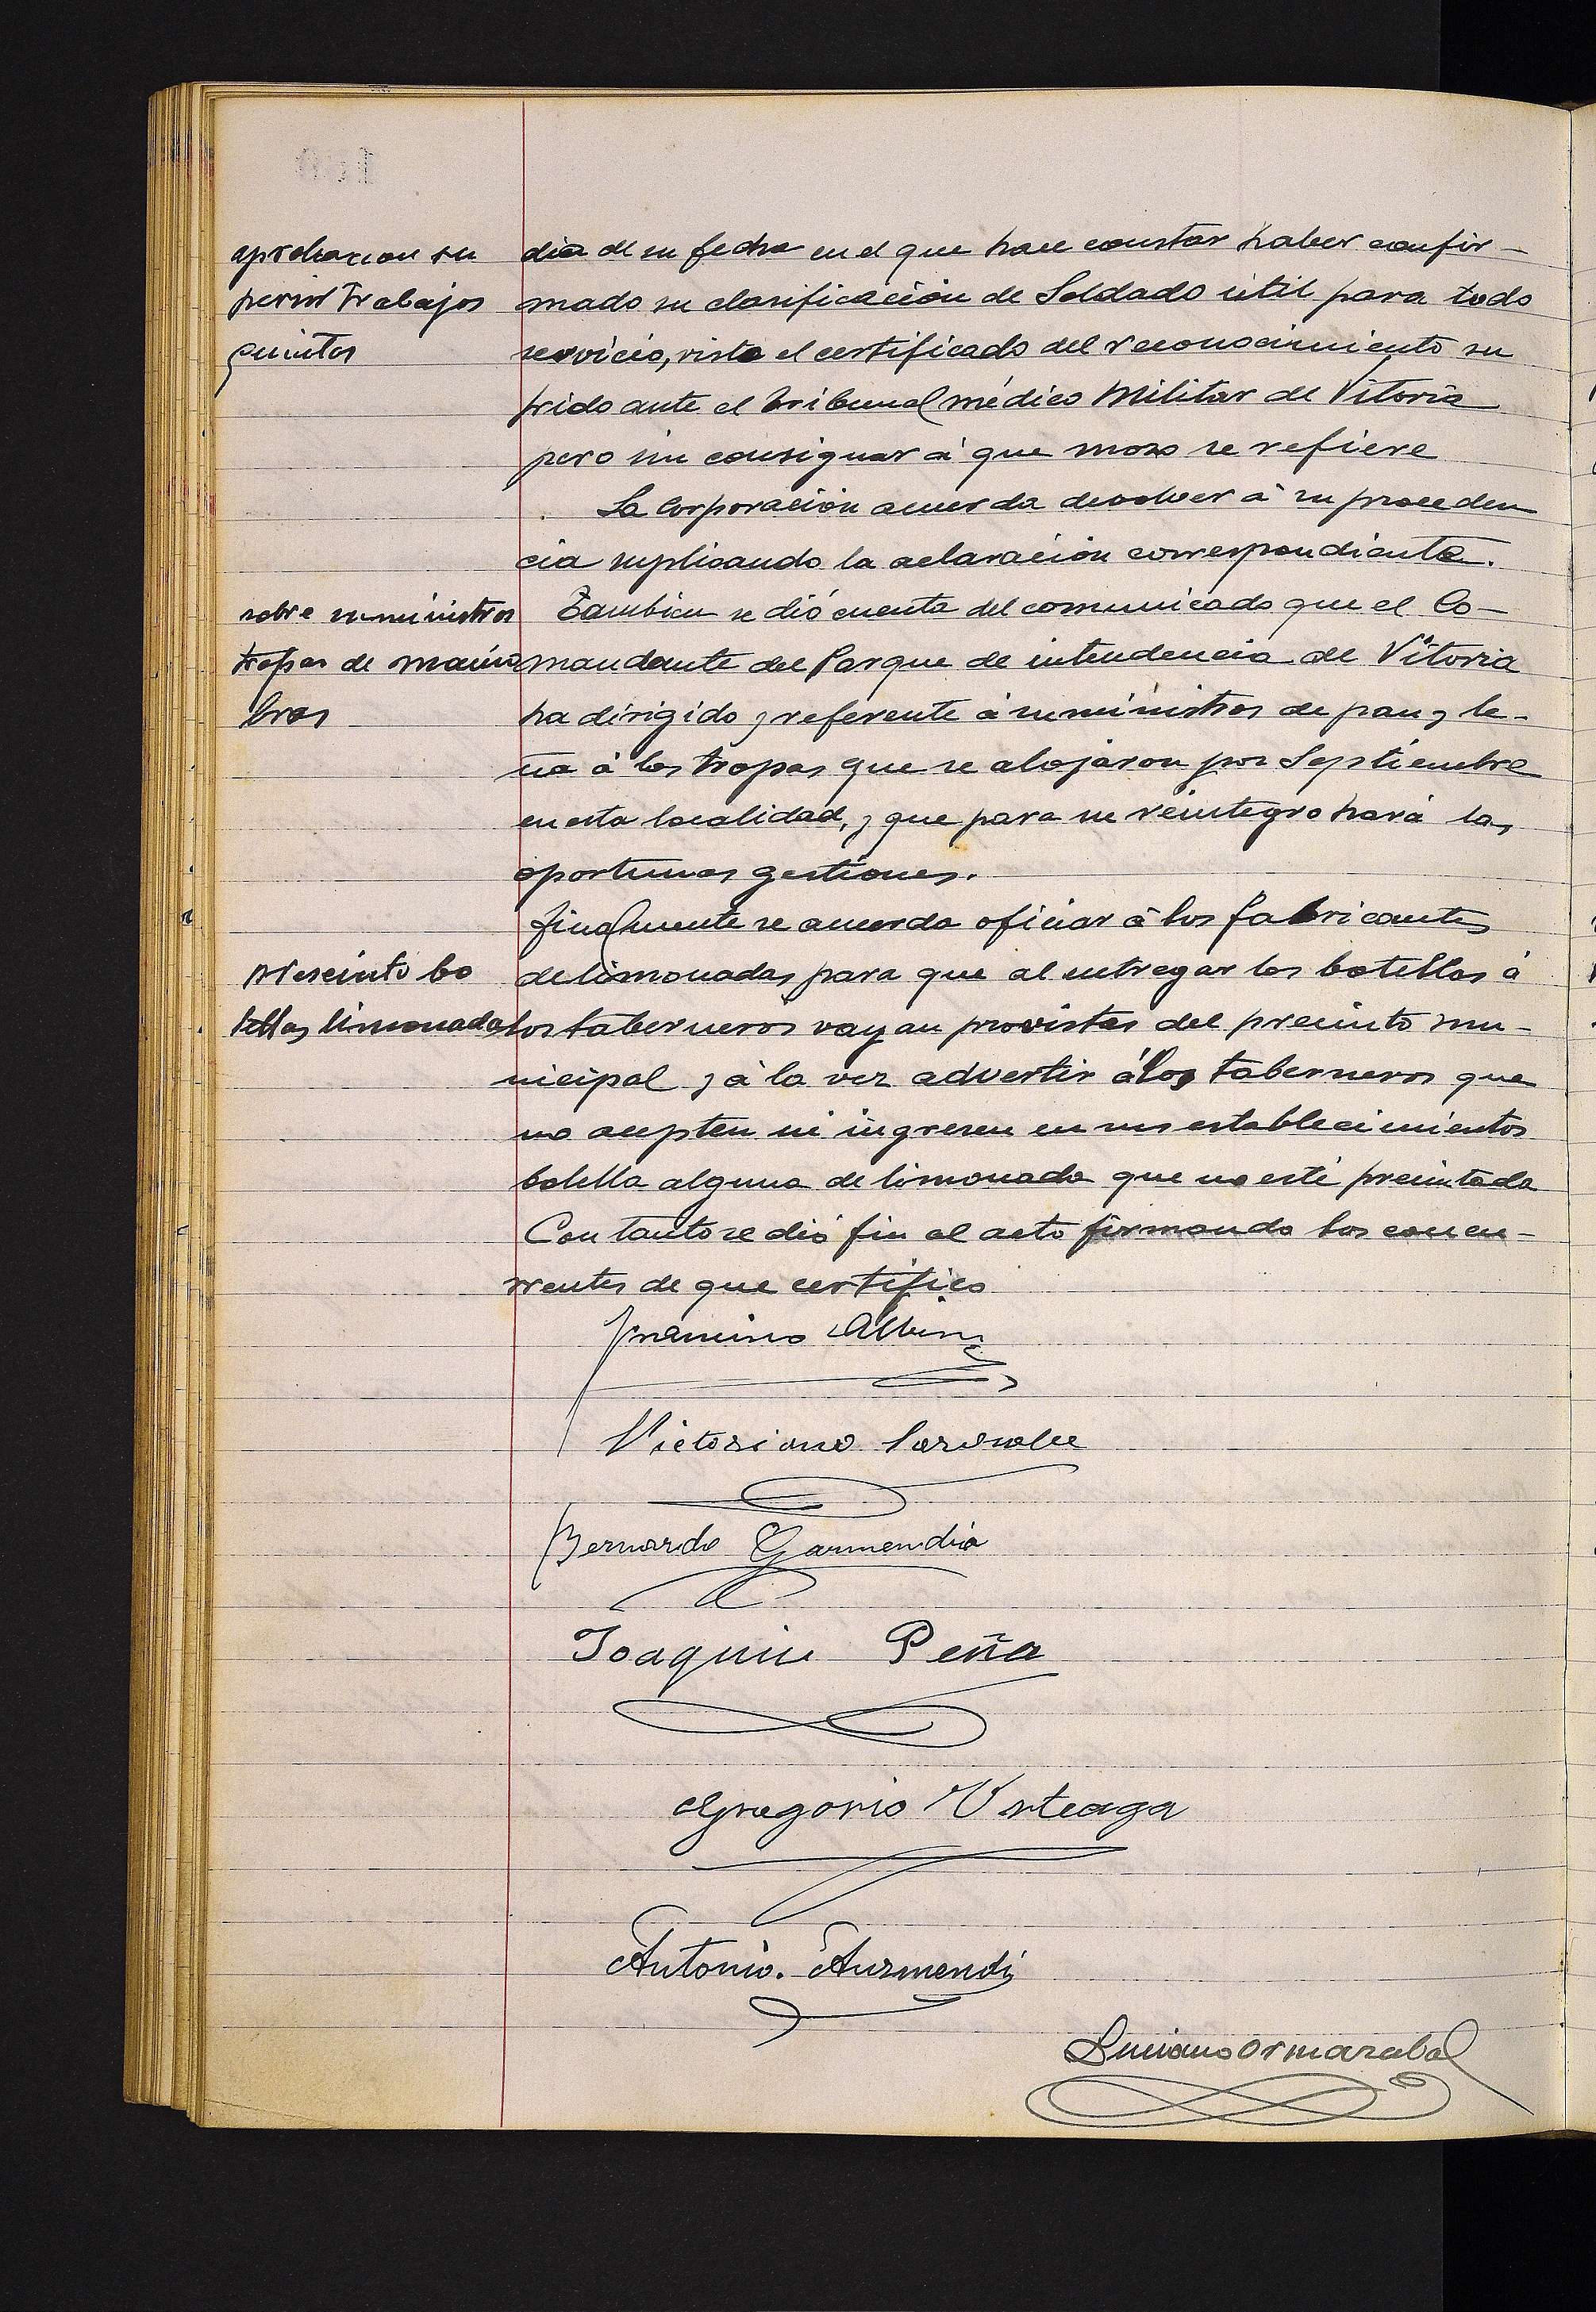 aprobacion su
perior trabajos
quintas
dia de su fecha en el que hace constar haber confir-
mado su clasificación de Soldado útil para todo
servicio, visto el certificado del reconocimiento su
frido ante el tribunal médico Militar de Vitoria
pero sin consignar á que mozo se refiere
La Corporación acuerda devolver á su proceden
cia suplicando la aclaración correspondiente.
sobre suministros
tropas de manio
bras
Tambien se dió cuenta del comunicado que el Co-
mandante del Parque de intendencia de Vitoria
ha dirigido y referente á suministros de pan y le-
ña á las tropas que se alojáron por Septiembre
en esta localidad, y que para su reintegro hará las
oportunas gestiones.
finalmente se acuerda oficiar á los fabricantes
Precinto bo
tellas limonada
de limonadas para que al entregar las botellas á
los taberneros vayan provistas del precinto mu-
nicipal y á la vez advertir á los taberneros que
no acepten ni ingresen en sus establecimientos
botella alguna de limonada que no esté precintada
Con tanto se dió fin al acto firmando los concu-
rrentes de que certifico
Victoriano
Bernardo Garmendia
Joaquin Peña
Gregorio Urteaga
Antonio Aurmendi
Luciano Ormazabal